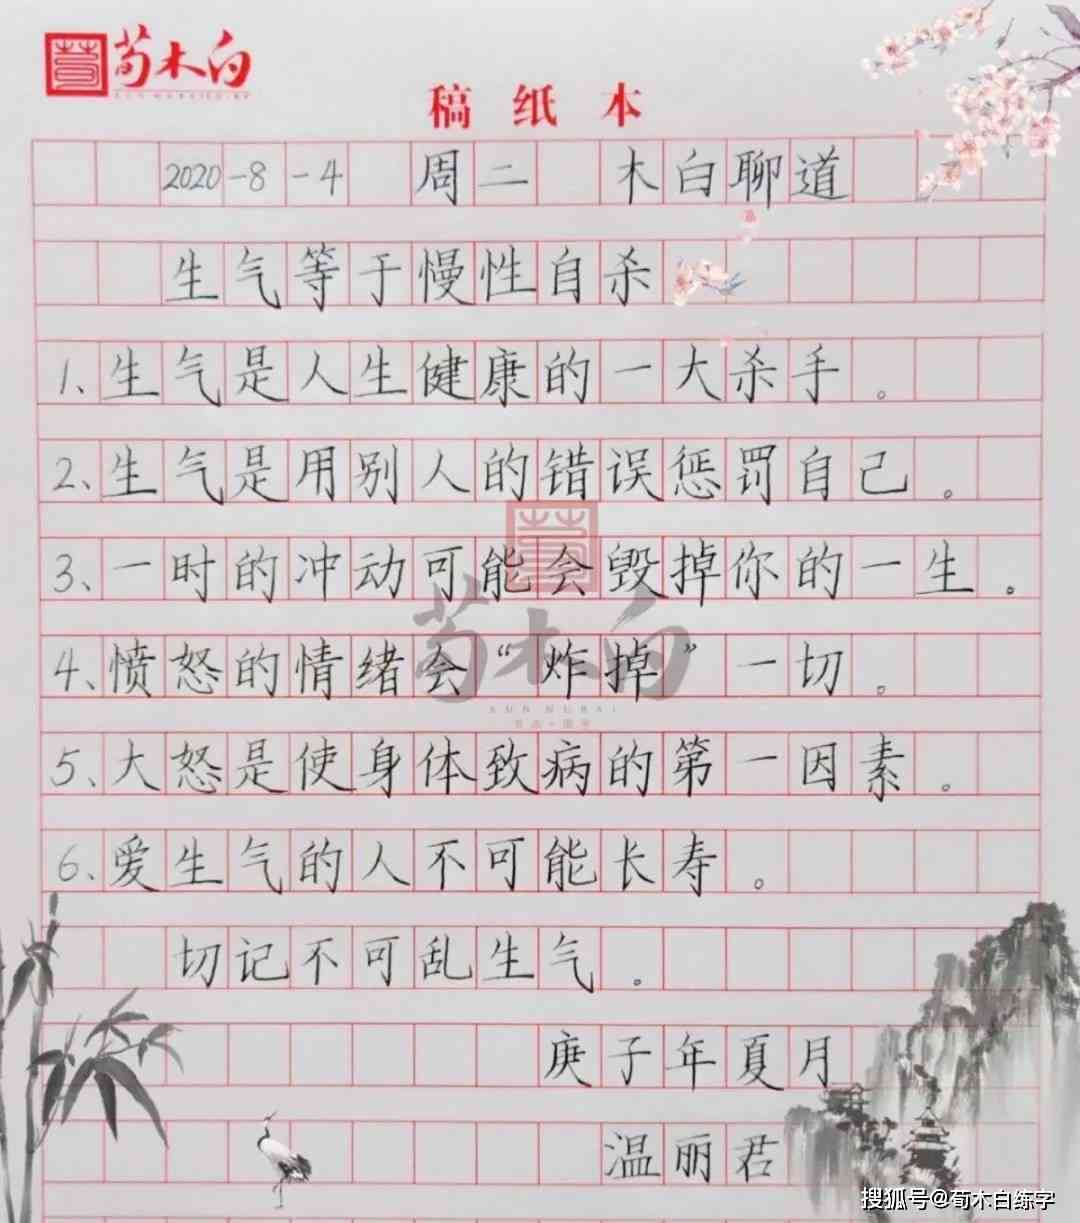 荀木白
XUN MUBAI
稿纸本
2020-8-4 周二 木白聊道
生气等于慢性自杀
1、生气是人生健康的一大杀手。
2、生气是用别人的错误惩罚自己。
3、一时的冲动可能会毁掉你的一生。
4、愤怒的情绪会“炸掉”一切。
5、大怒是使身体致病的第一因素。
6、爱生气的人不可能长寿。
切记不可乱生气。
庚子年夏月
温丽君
荀木白
XUN MUBAI
搜狐号@荀木白练字